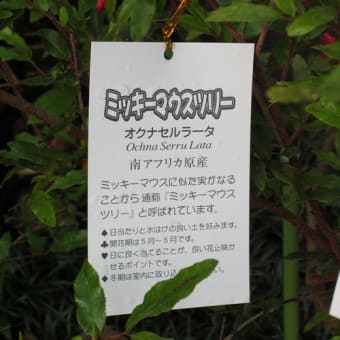 ミッキーマウスツリー
オクナセルラータ
Ochna Serru Lata
南アフリカ原産
ミッキーマウスに似た実がなる
ことから 通称『ミッキーマウス
ツリー』と呼ばれています。
♠日当たりと水はけの良い土を好みます。
♣開花期は5月〜6月です。
♥日に良く当てることが、良い花を咲か
せるポイントです。
♦冬期は室内に取り込